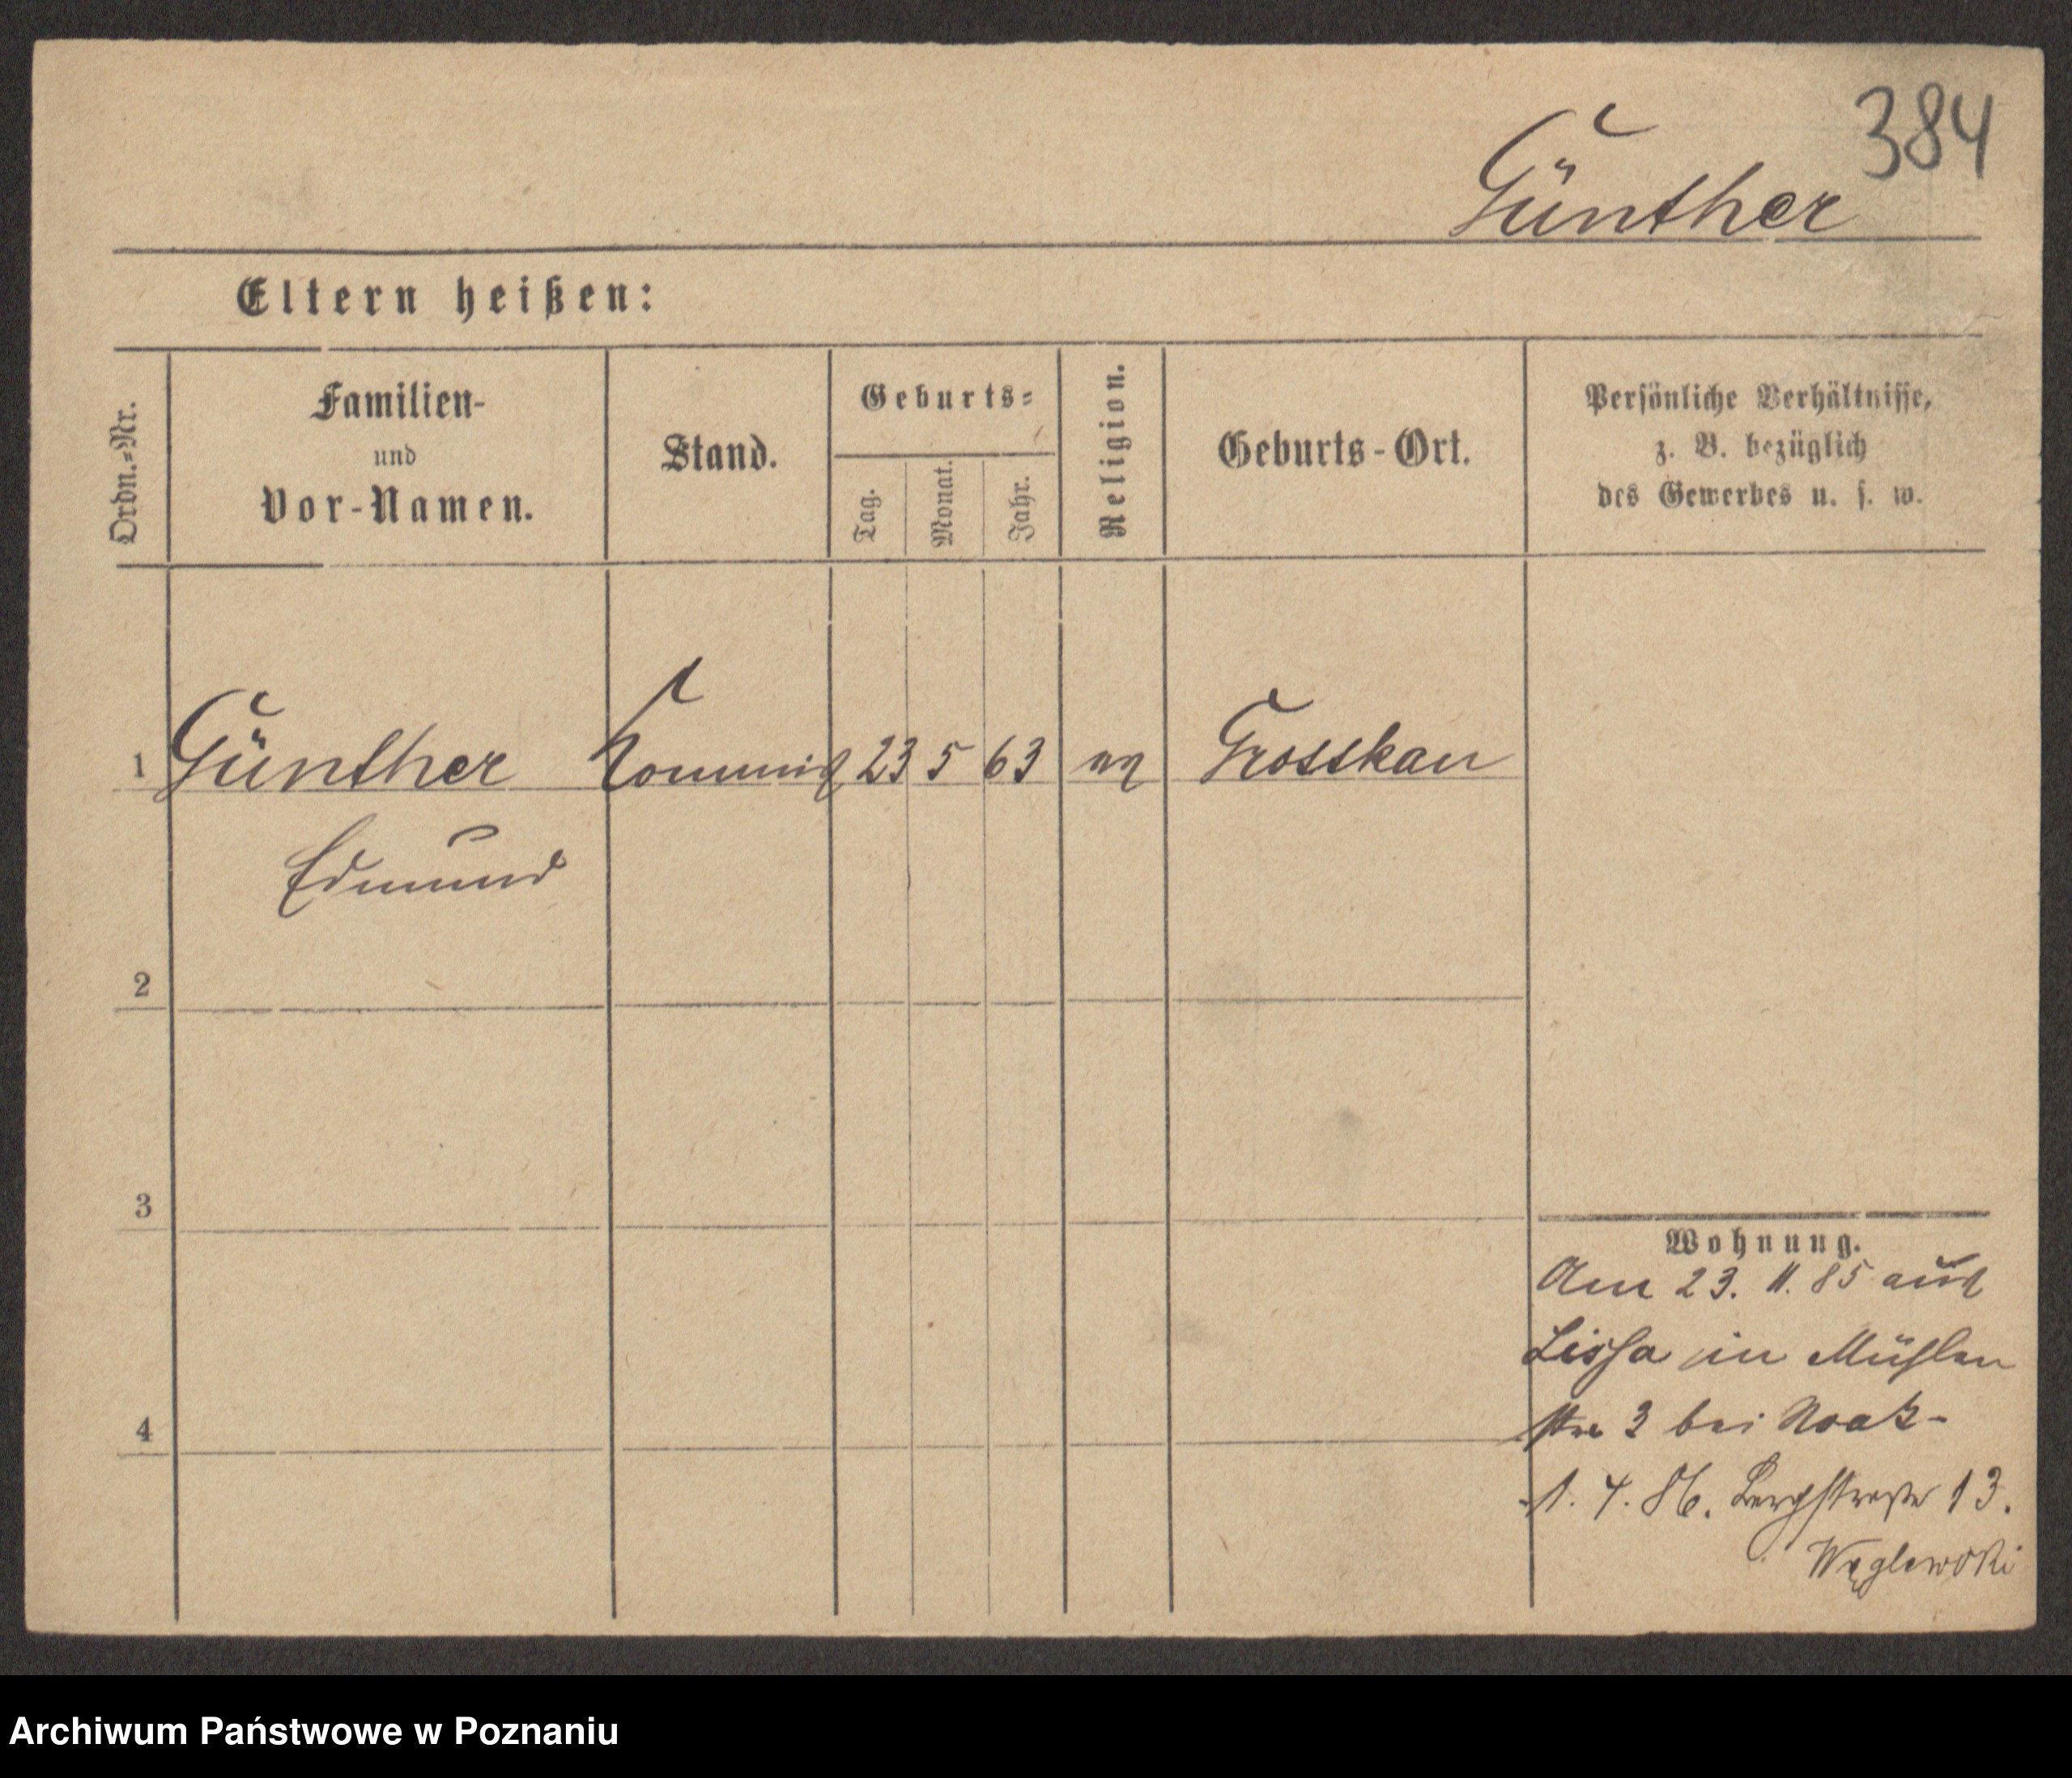 384
Günther
Eltern heißen:
Ordn.-Nr.
Familien-
und
Vor-Namen.
Stand.
Geburts-
Tag.
Monat.
Jahr.
Religion.
Geburts-Ort.
Persönliche Verhältnisse,
z. B. bezüglich
des Gewerbes u. s. w.
1 Günther Commis 23 5 63 Grosskau
Edmund
2
3
4
Wohnung.
Am 23. 11. 85 aus
Lissa in Mühlen
str 3 bei Noak-
1. 4. 86. Bergstraße 13.
Węglewski
Archiwum Państwowe w Poznaniu